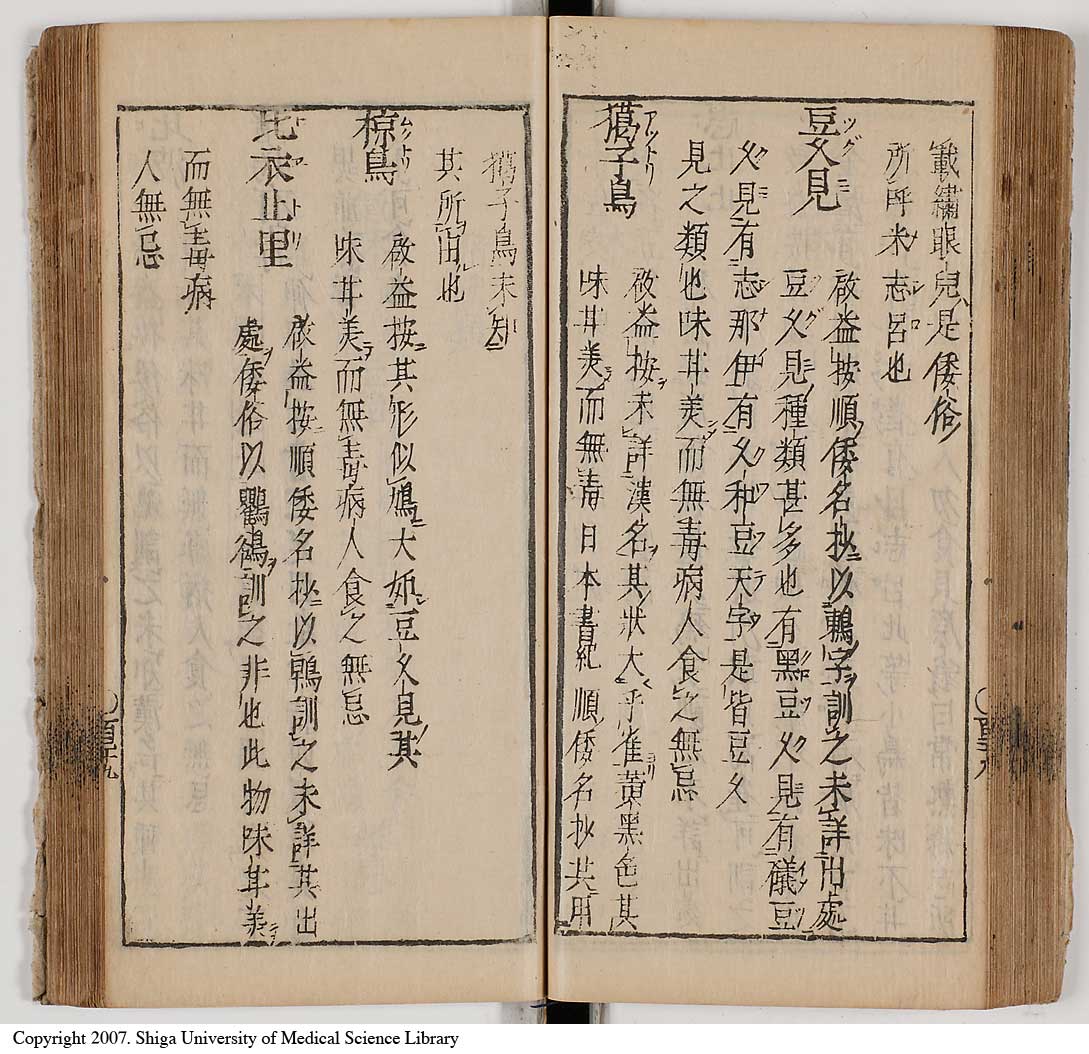 載繡眼兒是倭俗
所呼米志呂也
豆久見
啟益按順倭名抄以鶫字訓之未詳出處
豆久見種類甚多也有黑豆久見有礒豆
久見有志那伊有久和豆天字是皆豆久
見之類也味甘美而無毒病人食之無忌
獦子鳥
啟益按未詳漢名其狀大乎雀黃黑色其
味甘美而無毒日本書紀順倭名抄共用
獦子鳥未知
其所出也
椋鳥
啟益按其形似鳩大如豆久見其
味甘美而無毒病人食之無忌
比衣止里
啟益按順倭名抄以鵯訓之未詳其出
處倭俗以鸜鵒訓之非也此物味甘美
而無毒病
人無忌
Copyright 2007. Shiga University of Medical Science Library